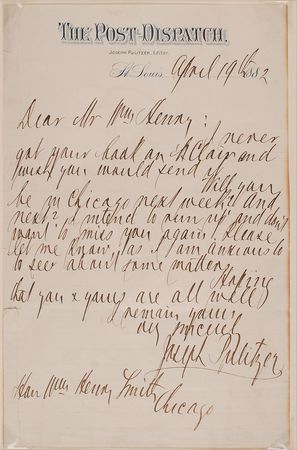 THE POST-DISPATCH,
JOSEPH PULITZER, Editor.
St. Louis, April 19th 1882
Dear Mr Wm Henry:
I never
got your book on St Clair and
wish you would send it.
Will you
be in Chicago next week? and
next? I intend to run up and don't
want to miss you again. Please
let me know, as I am anxious to
to see about some matter.
Hoping
that you & yours are all well
I remain yours
Joseph Pulitzer
Hon Wm Henry Smith
Chicago